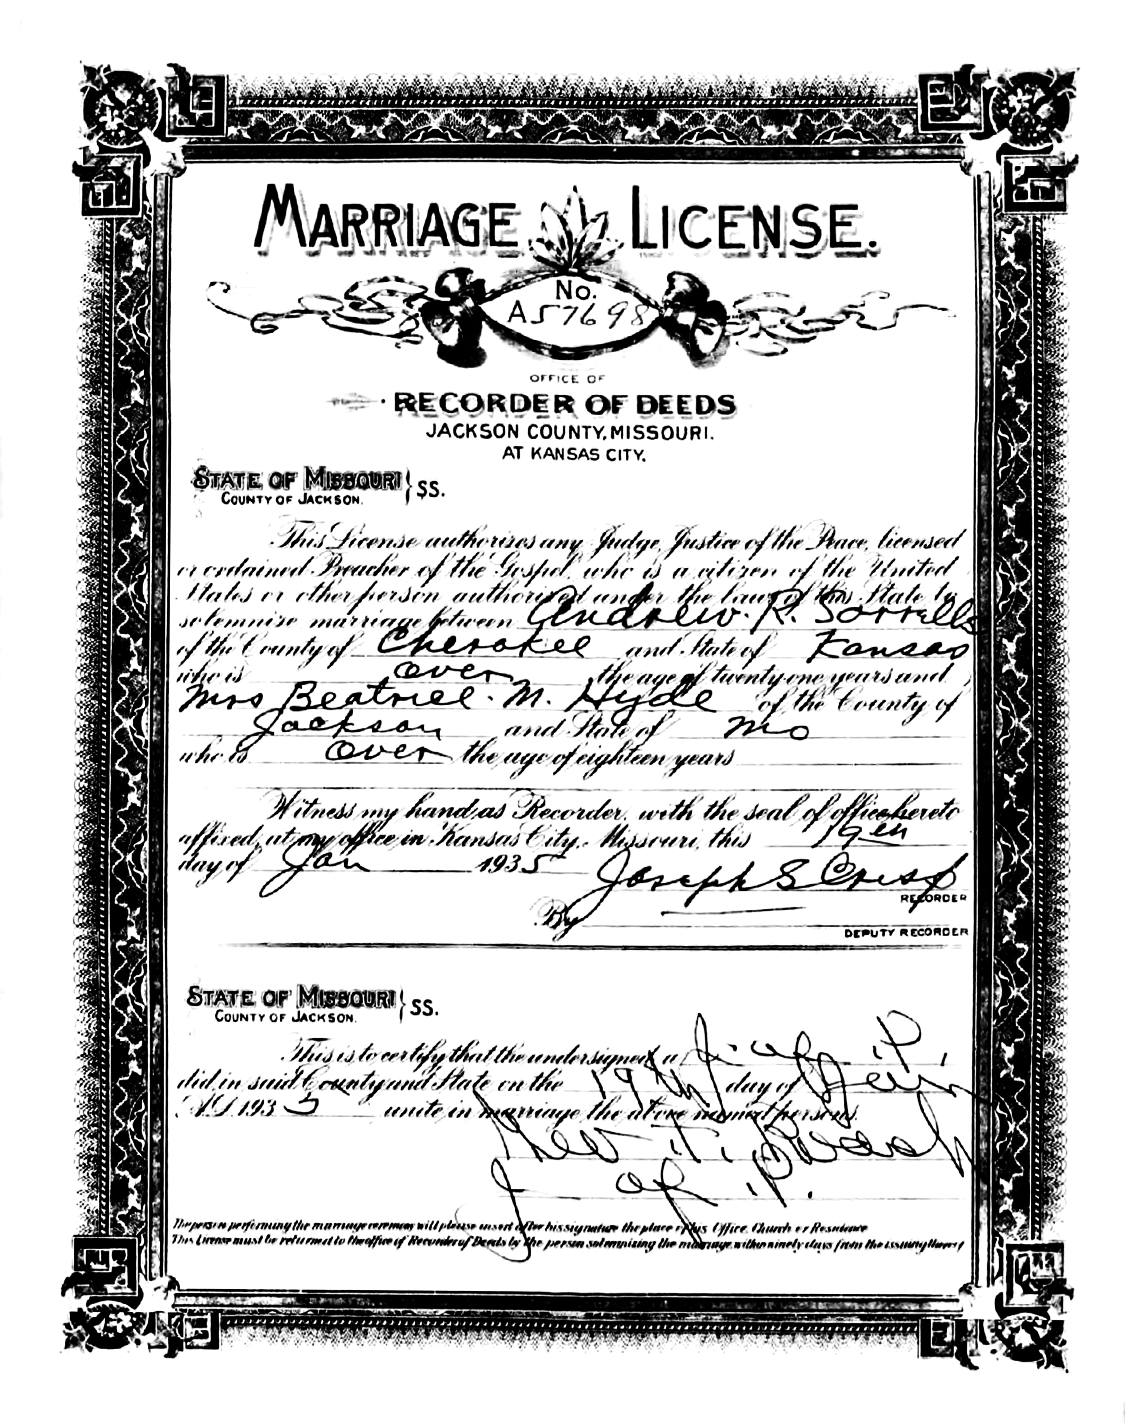 MARRIAGE LICENSE.
No.
A57698
OFFICE OF
RECORDER OF DEEDS
JACKSON COUNTY, MISSOURI.
AT KANSAS CITY.
STATE OF MISSOURI } SS.
COUNTY OF JACKSON.
This License authorizes any Judge, Justice of the Peace, licensed
or ordained Preacher of the Gospel, who is a citizen of the United
States or other person authorized under the laws of this State to
solemnize marriage between Andrew. R. Sorrells
of the County of Cherokee and State of Kansas
who is over the age of twenty-one years and
Mrs Beatrice. M. Hyde of the County of
Jackson and State of Mo
who is over the age of eighteen years
Witness my hand as Recorder, with the seal of office hereto
affixed, at my office in Kansas City, Missouri, this
day of Jan 1935 Joseph S Crisp
RECORDER
By
DEPUTY RECORDER
STATE OF MISSOURI } SS.
COUNTY OF JACKSON.
This is to certify that the undersigned, a J. of P.,
did in said County and State on the 19th day of Jan
A.D. 1935 unite in marriage the above named persons.
J of P.
The person performing the marriage ceremony will please insert after his signature the place of his Office, Church or Residence
This License must be returned to the office of Recorder of Deeds by the person solemnizing the marriage within ninety days from the issuing thereof